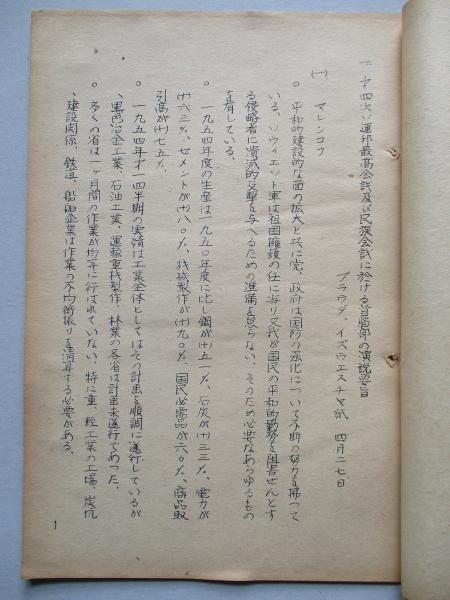 一、才四次ソ連邦最高会議及び民族会議に於ける首脳部の演説要旨
プラウダ、イズウエスチヤ紙 四月二七日
(一) マレンコフ
○ 平和的建設的な面の拡大と共に党、政府は国防の強化について不断の努力を拂って
いる。ソウイエット軍は祖国擁護の任に当り又我が国民の平和的勤労を阻害せんとす
る侵略者に潰滅的反撃を与へるための準備を怠らない。そのため必要なあらゆるもの
を有している。
○ 一九五四年度の生産は一九五〇年度に比し鋼が(十)五一%、石炭が(十)三三%、電力が
(十)六三%、セメントが(十)八〇%、機械製作が(十)九〇%、国民必需品が六〇%、商品取
引高が(十)七五%
○ 一九五四年才一4半期の実績は工業全体としてはその計画を順調に遂行しているが
、黒色冶金工業、石油工業、運輸重機製作、林業の各省は計画未遂行であった。
○ 多くの省は一ヶ月間の作業が均等に行はれていない、特に重、軽工業の工場、炭坑
、建設関係、鉄道、船舶企業は作業の不均衡振りを清算する必要がある。
1